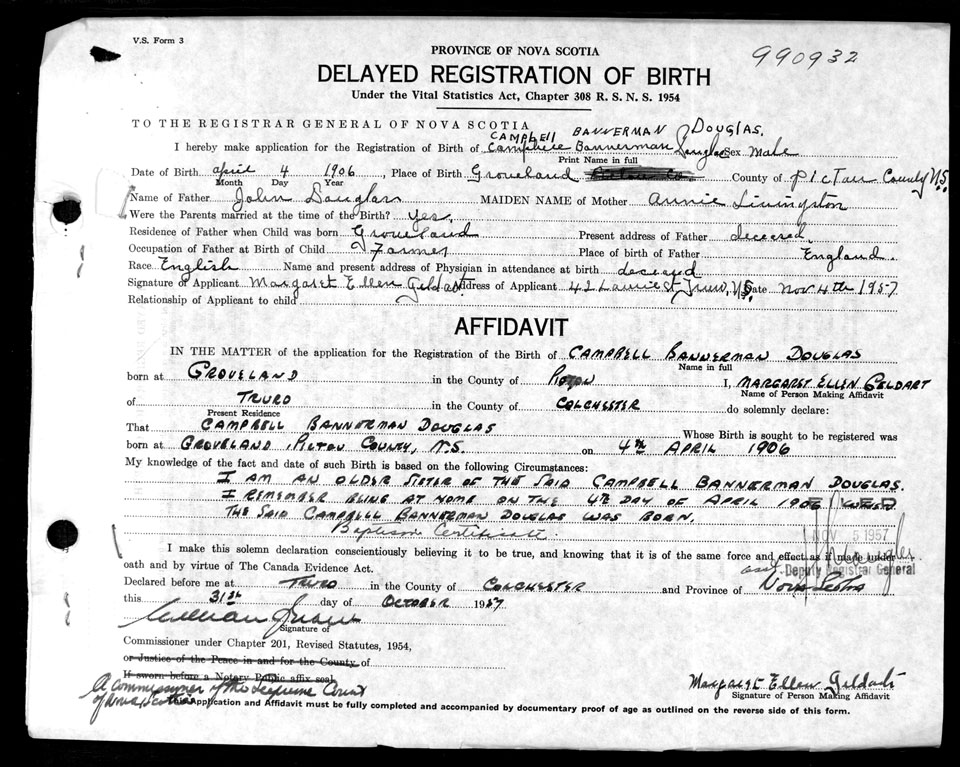 V.S. Form 3
990932
PROVINCE OF NOVA SCOTIA
DELAYED REGISTRATION OF BIRTH
Under the Vital Statistics Act, Chapter 308 R. S. N. S. 1954
TO THE REGISTRAR GENERAL OF NOVA SCOTIA
CAMPBELL BANNERMAN DOUGLAS.
I hereby make application for the Registration of Birth of Campbell Bannerman Douglas Sex Male
Print Name in full
Date of Birth April 4 1906, Place of Birth Groveland County of Pictou County N.S.
Month Day Year
Name of Father John Douglas MAIDEN NAME of Mother Annie Livingston
Were the Parents married at the time of the Birth? Yes.
Residence of Father when Child was born Groveland Present address of Father deceased.
Occupation of Father at Birth of Child Farmer Place of birth of Father England.
Race English Name and present address of Physician in attendance at birth deceased
Signature of Applicant Margaret Ellen Geldart Address of Applicant 42 Laurie St Truro, N.S. Date Nov 4th 1957
Relationship of Applicant to child
AFFIDAVIT
IN THE MATTER of the application for the Registration of the Birth of CAMPBELL BANNERMAN DOUGLAS
Name in full
born at GROVELAND in the County of PICTOU I, MARGARET ELLEN GELDART
Name of Person Making Affidavit
of TRURO in the County of COLCHESTER do solemnly declare:
Present Residence
That CAMPBELL BANNERMAN DOUGLAS Whose Birth is sought to be registered was
born at GROVELAND, PICTOU COUNTY, N.S. on 4th APRIL 1906
My knowledge of the fact and date of such Birth is based on the following Circumstances:
I AM AN OLDER SISTER OF THE SAID CAMPBELL BANNERMAN DOUGLAS.
I REMEMBER BEING AT HOME ON THE 4TH DAY OF APRIL 1906 WHEN
THE SAID CAMPBELL BANNERMAN DOUGLAS WAS BORN.
Baptism Certificate.
NOV 5 1957
I make this solemn declaration conscientiously believing it to be true, and knowing that it is of the same force and effect as if made under
oath and by virtue of The Canada Evidence Act.
Deputy Registrar General
Declared before me at TRURO in the County of COLCHESTER and Province of NOVA SCOTIA
this 31st day of OCTOBER 1957
Signature of
Commissioner under Chapter 201, Revised Statutes, 1954,
or Justice of the Peace in and for the County of
If sworn before a Notary Public affix seal
A Commissioner of the Supreme Court
of Nova Scotia
Margaret Ellen Geldart
Signature of Person Making Affidavit
This Application and Affidavit must be fully completed and accompanied by documentary proof of age as outlined on the reverse side of this form.